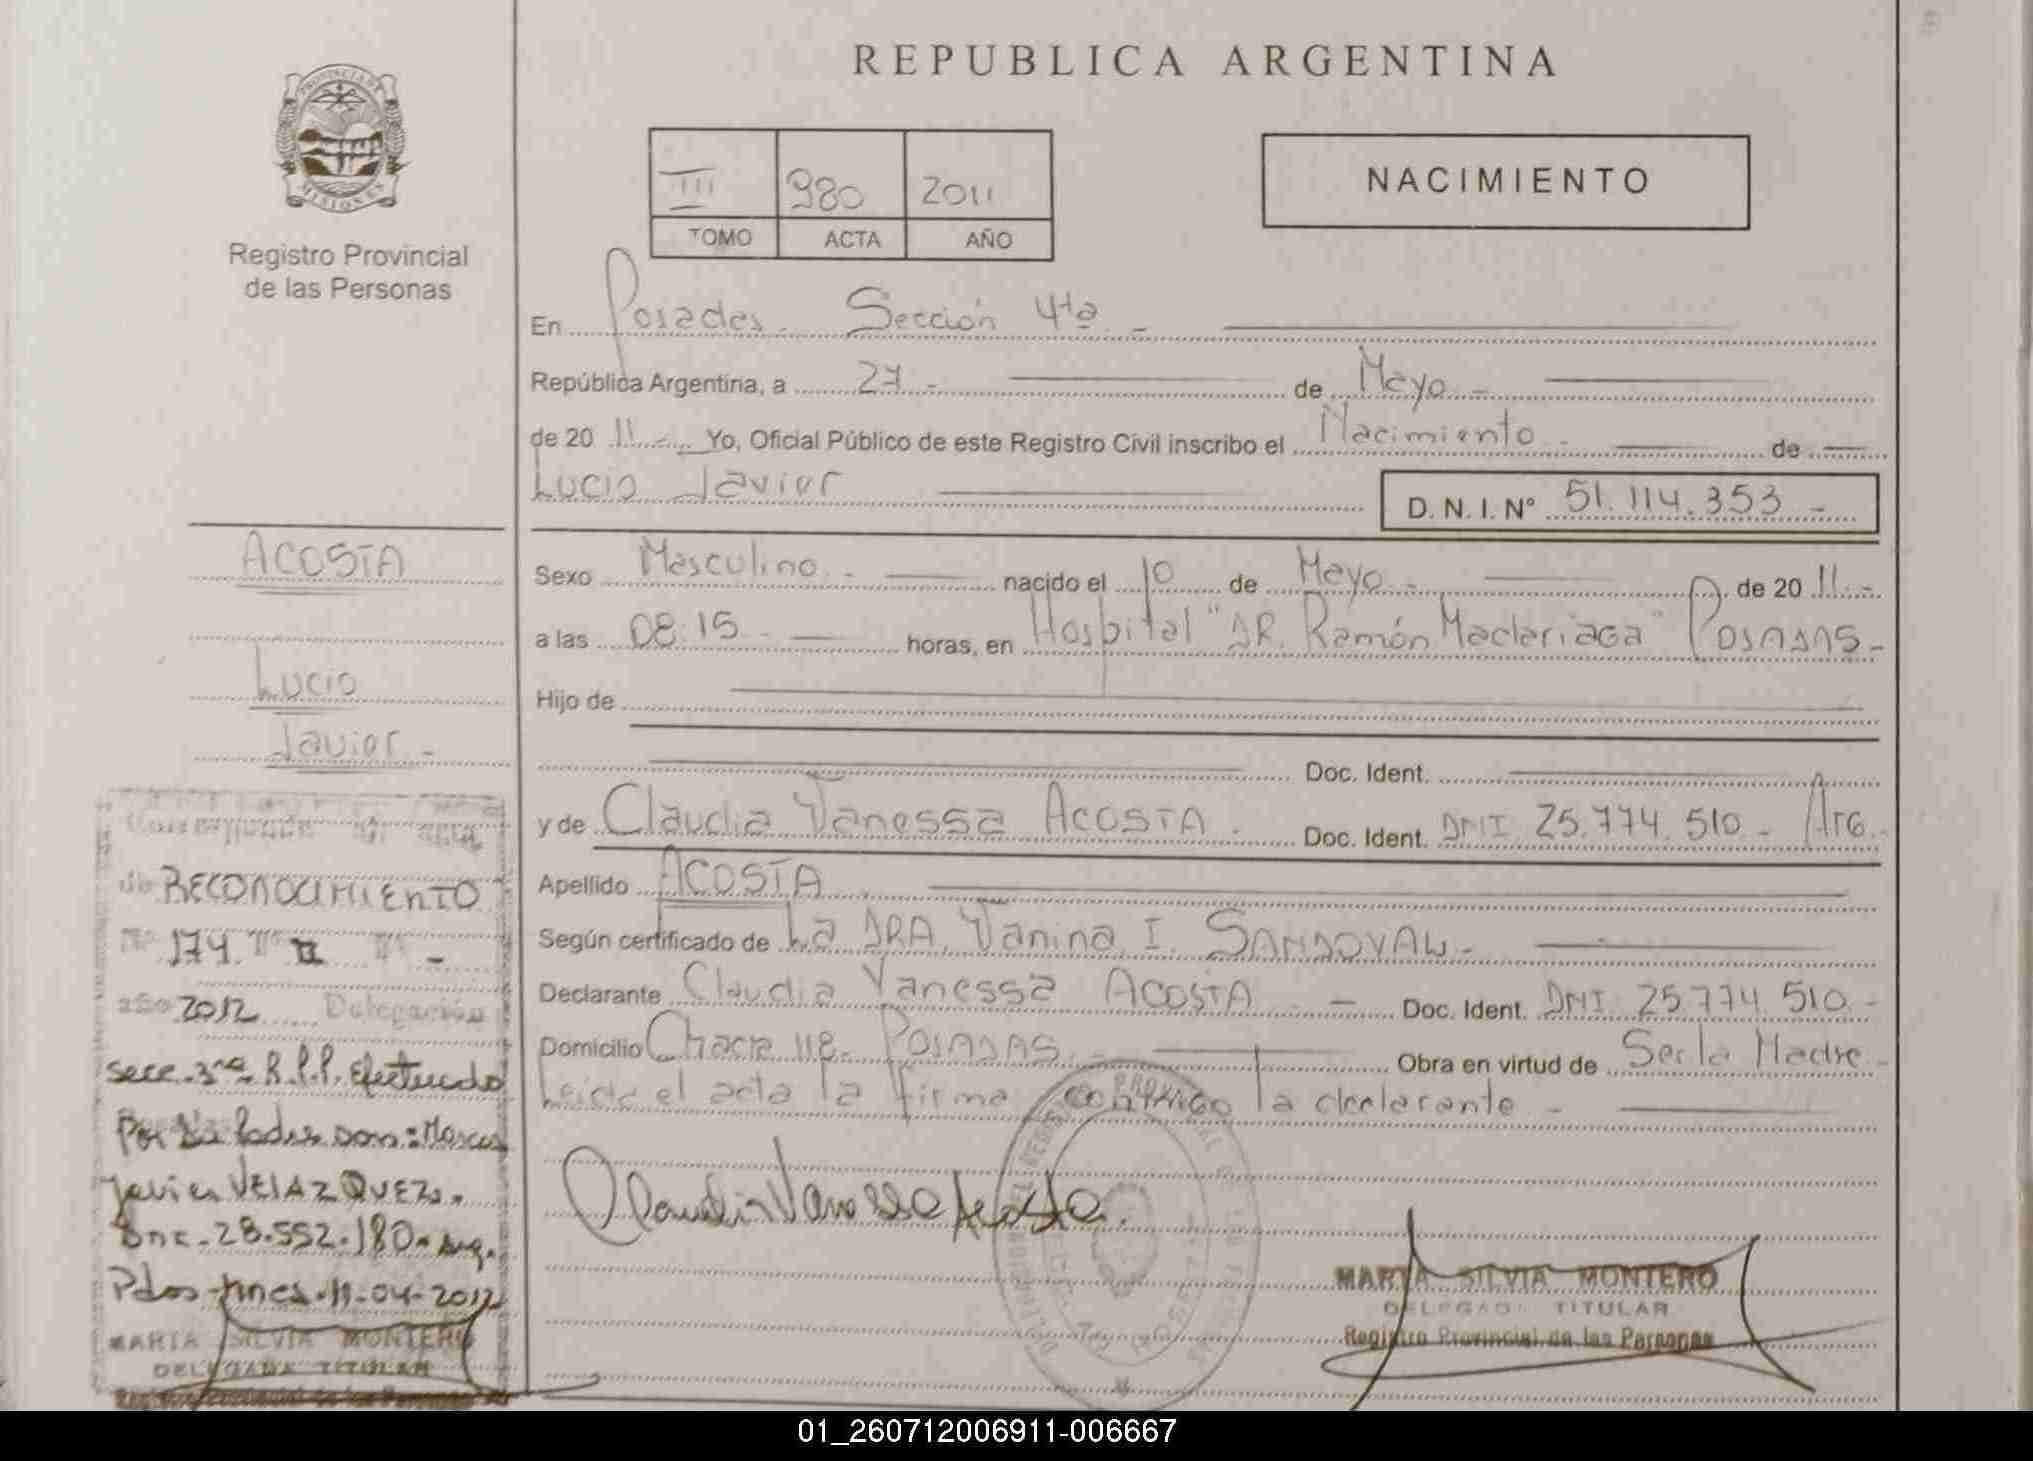 REPUBLICA ARGENTINA
PROVINCIA DE MISIONES
Registro Provincial
de las Personas
III 980 2011
TOMO ACTA AÑO
NACIMIENTO
En Posadas - Sección 4ta -
República Argentina, a 27 - de Mayo -
de 20 11 - Yo, Oficial Público de este Registro Civil inscribo el Nacimiento - de
Lucio Javier
D. N. I. Nº 51.114.353 -
ACOSTA
Lucio
Javier -
Sexo Masculino - nacido el 10 de Mayo - de 20 11 -
a las 08:15 - horas, en Hospital "DR. Ramón Madariaga" POSADAS -
Hijo de
Doc. Ident.
y de Claudia Vanessa ACOSTA - Doc. Ident. DNI 25.774.510 - ARG.
Apellido ACOSTA
Según certificado de La DRA. Vanina I. SANDOVAL -
Declarante Claudia Vanessa ACOSTA - Doc. Ident. DNI 25.774.510 -
Domicilio Chacra 118 - POSADAS - Obra en virtud de Ser la Madre -
Leida el acta la firma conmigo la declarante -
Claudia Vanessa Acosta.
MARTA SILVIA MONTERO
DELEGADA TITULAR
Registro Provincial de las Personas
acta
de RECONOCIMIENTO
Nº 174 Tº II -
año 2012 Delegación
secc. 3ra. R.P.P. Efectuado
Por Padre Don: Marcos
Javier VELAZQUEZ.
28.552.180 - Arg.
11-04-2012
MARTA SILVIA MONTERO
DELEGADA TITULAR
Registro Provincial de las Personas
01_260712006911-006667